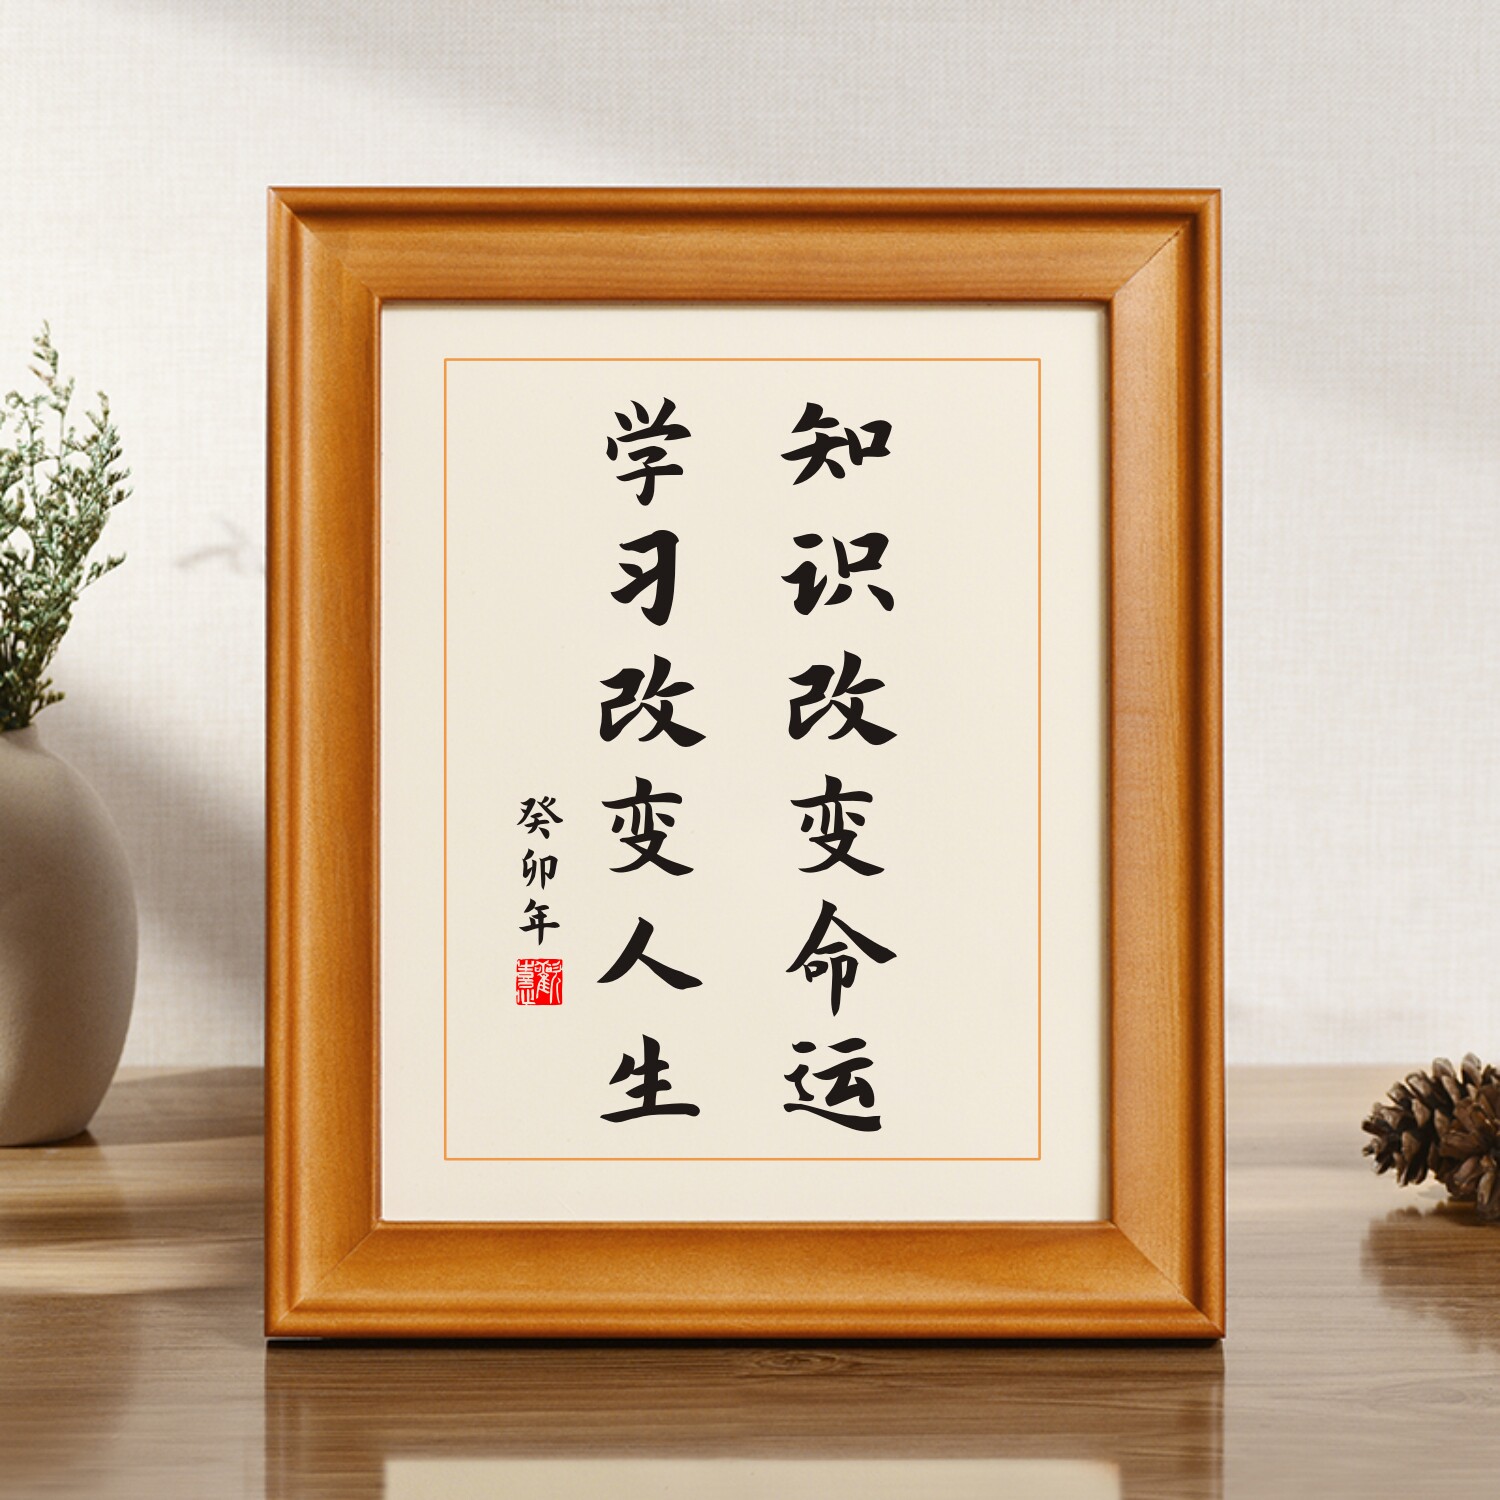 知识改变命运
学习改变人生
癸卯年